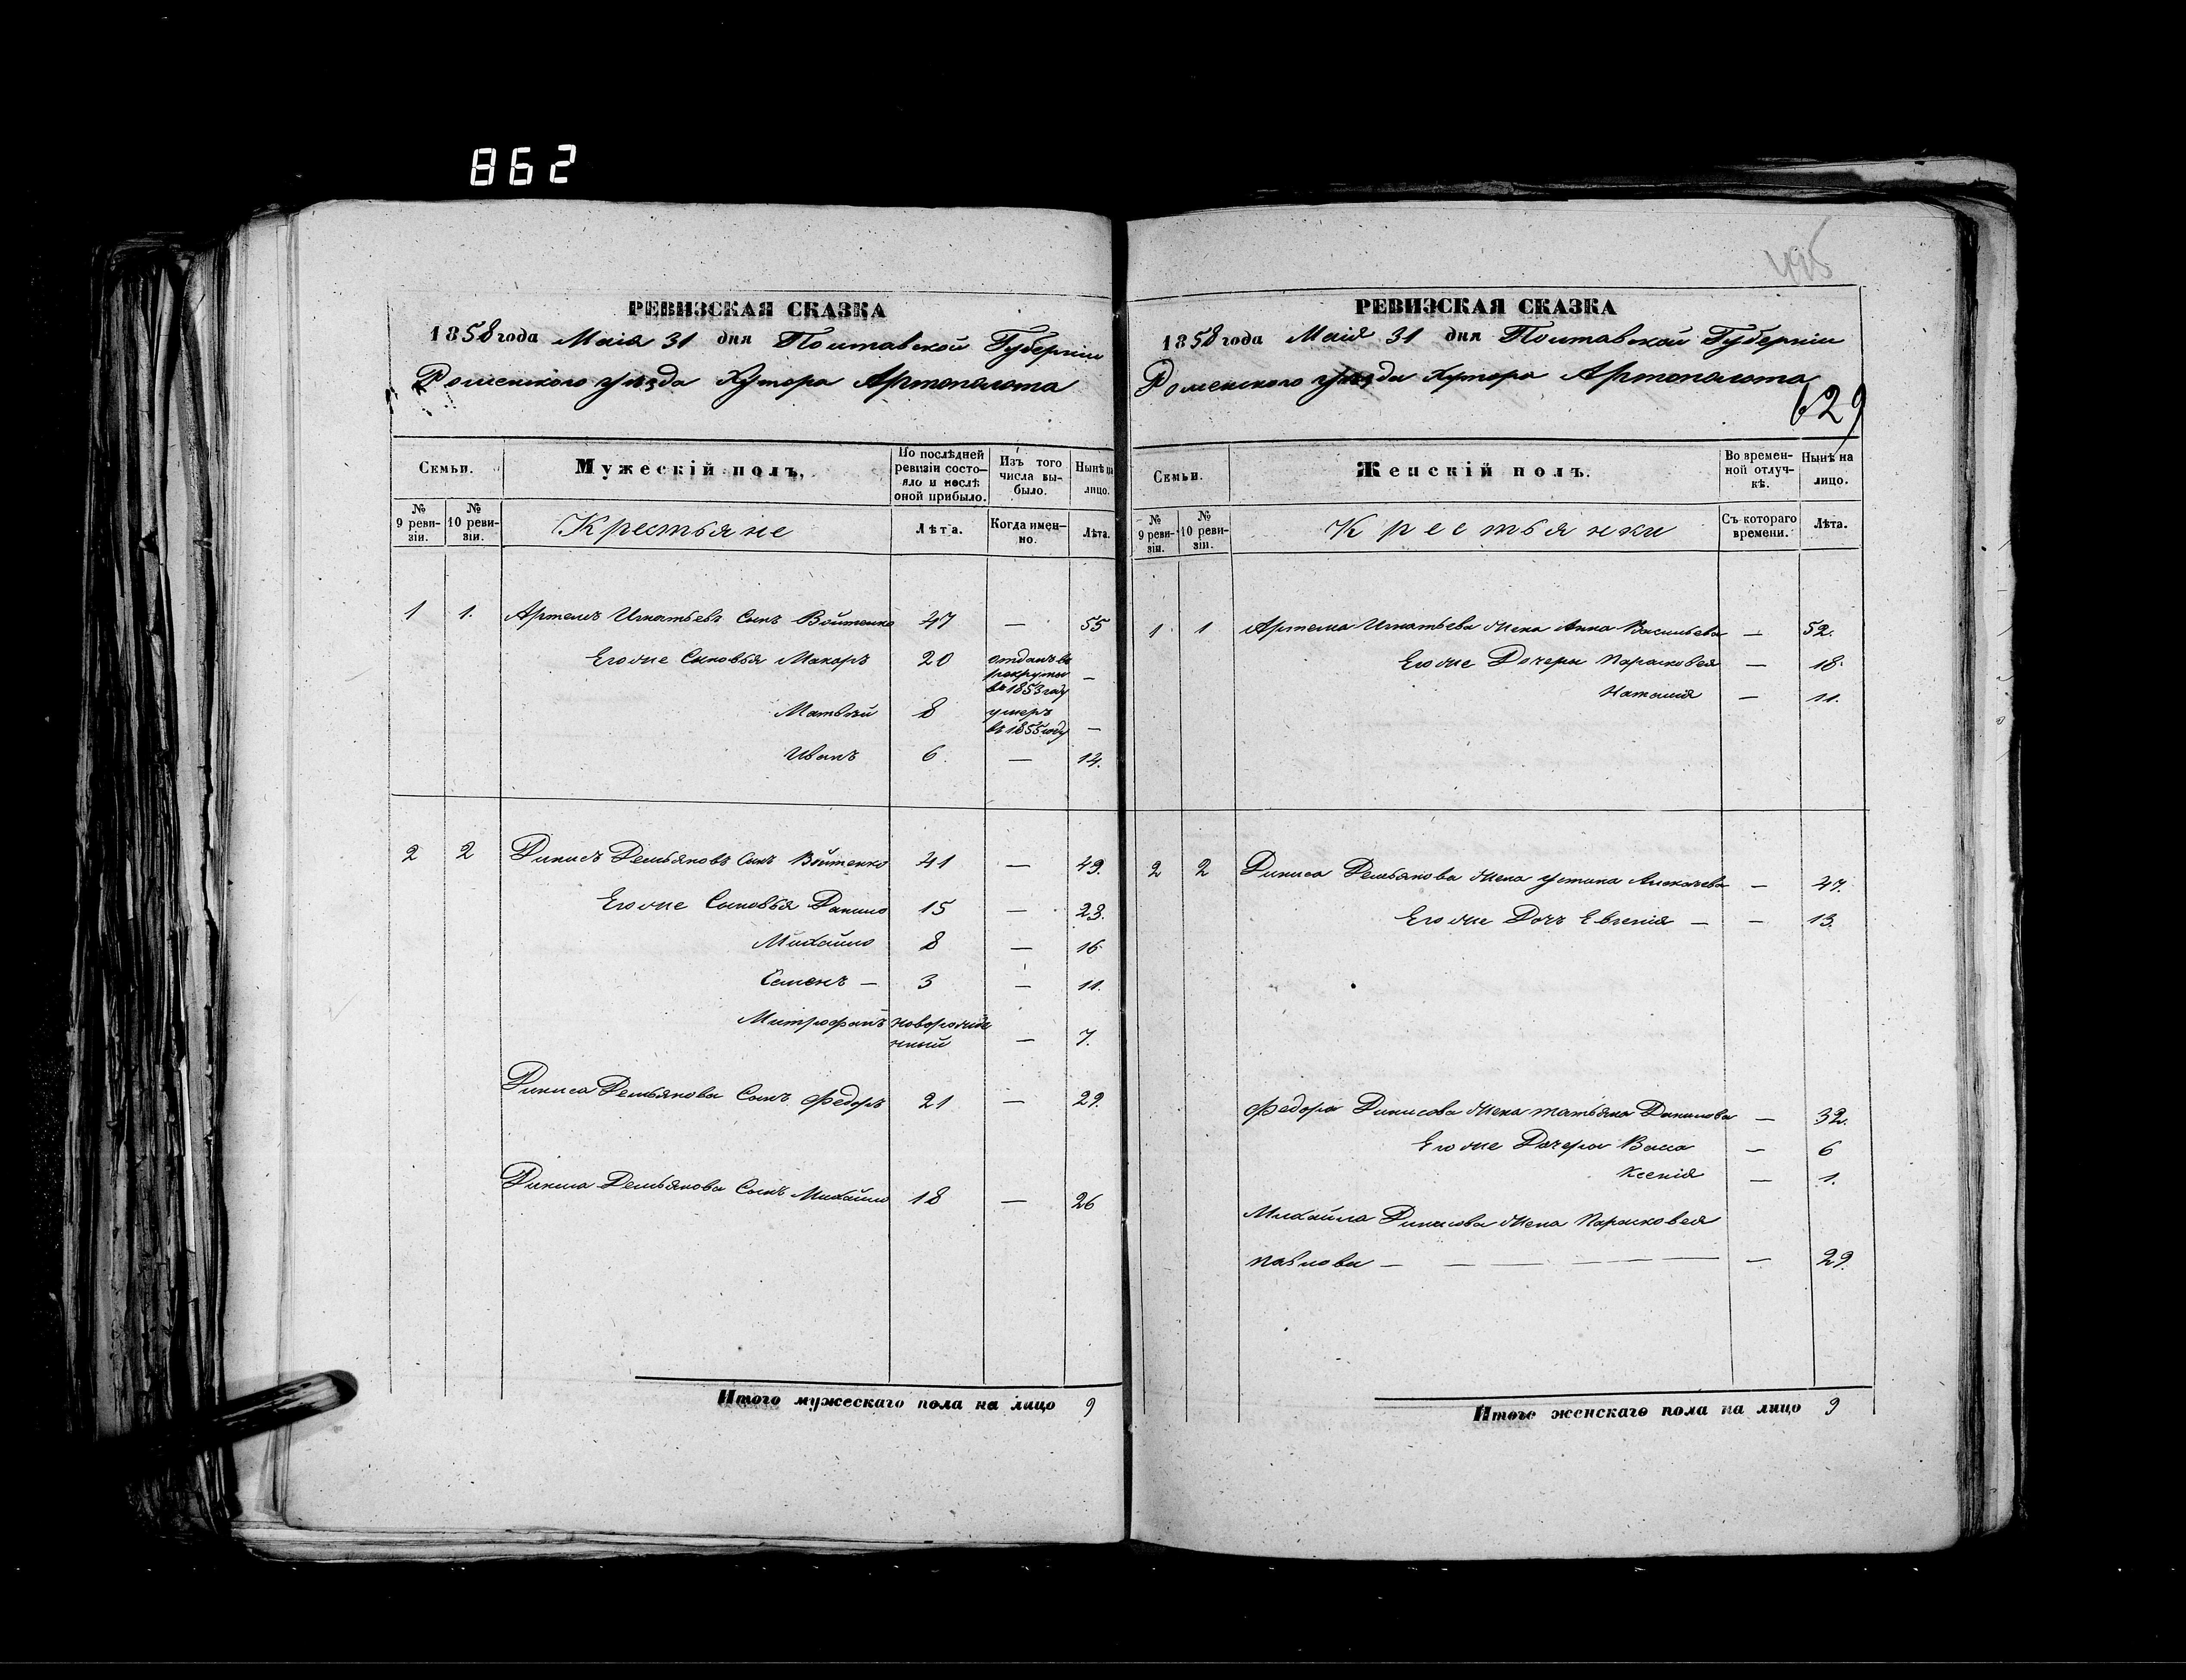 862
495
РЕВИЗСКАЯ СКАЗКА
1858 года Маія 31 дня Полтавской Губерніи
Роменского уѣзда Хутора Артополота
Семьи.
Мужескій полъ,
По послѣдней ревизіи состояло и послѣ оной прибыло.
Изъ того числа выбыло.
Нынѣ на лицо.
№ 9 ревизіи.
№ 10 ревизіи.
Крестьяне
Лѣта.
Когда именно.
Лѣта.
1 1. Артемъ Игнатьевъ Сынъ Войтенко 47 — 55
Егоже Сыновья Макаръ 20 отданъ въ рекруты въ 1853 году —
Матвѣй 8 умеръ въ 1855 году —
Иванъ 6. — 14.
2 2 Динисъ Демьяновъ Сынъ Войтенко 41 — 49.
Егоже Сыновья Данило 15 — 23.
Михайло 8 — 16.
Семенъ — 3 — 11.
Митрофанъ новорожденный — 7.
Диниса Демьянова Сынъ Федоръ 21 — 29.
Диниса Демьянова Сынъ Михайло 18 — 26
Итого мужескаго пола на лицо 9
РЕВИЗСКАЯ СКАЗКА
1858 года Маія 31 дня Полтавской Губерніи
Роменского уѣзда Хутора Артополота
629
Семьи.
Женскій полъ.
Во временной отлучкѣ.
Нынѣ на лицо.
№ 9 ревизіи.
№ 10 ревизіи.
Крестьянки
Съ котораго времени.
Лѣта.
1 1 Артема Игнатьева жена Анна Васильева — 52.
Егоже Дочери Парасковея — 18.
Наталія — 11.
2 2 Диниса Демьянова жена Устина Алексѣева — 47.
Егоже Дочь Евгенія — — 13.
Федора Динисова жена Татьяна Данилова — 32.
Егоже Дочери Васса — 6
Ксенія — 1.
Михайла Динисова жена Парасковея
Павлова — — — — — — — 29.
Итого женскаго пола на лицо 9